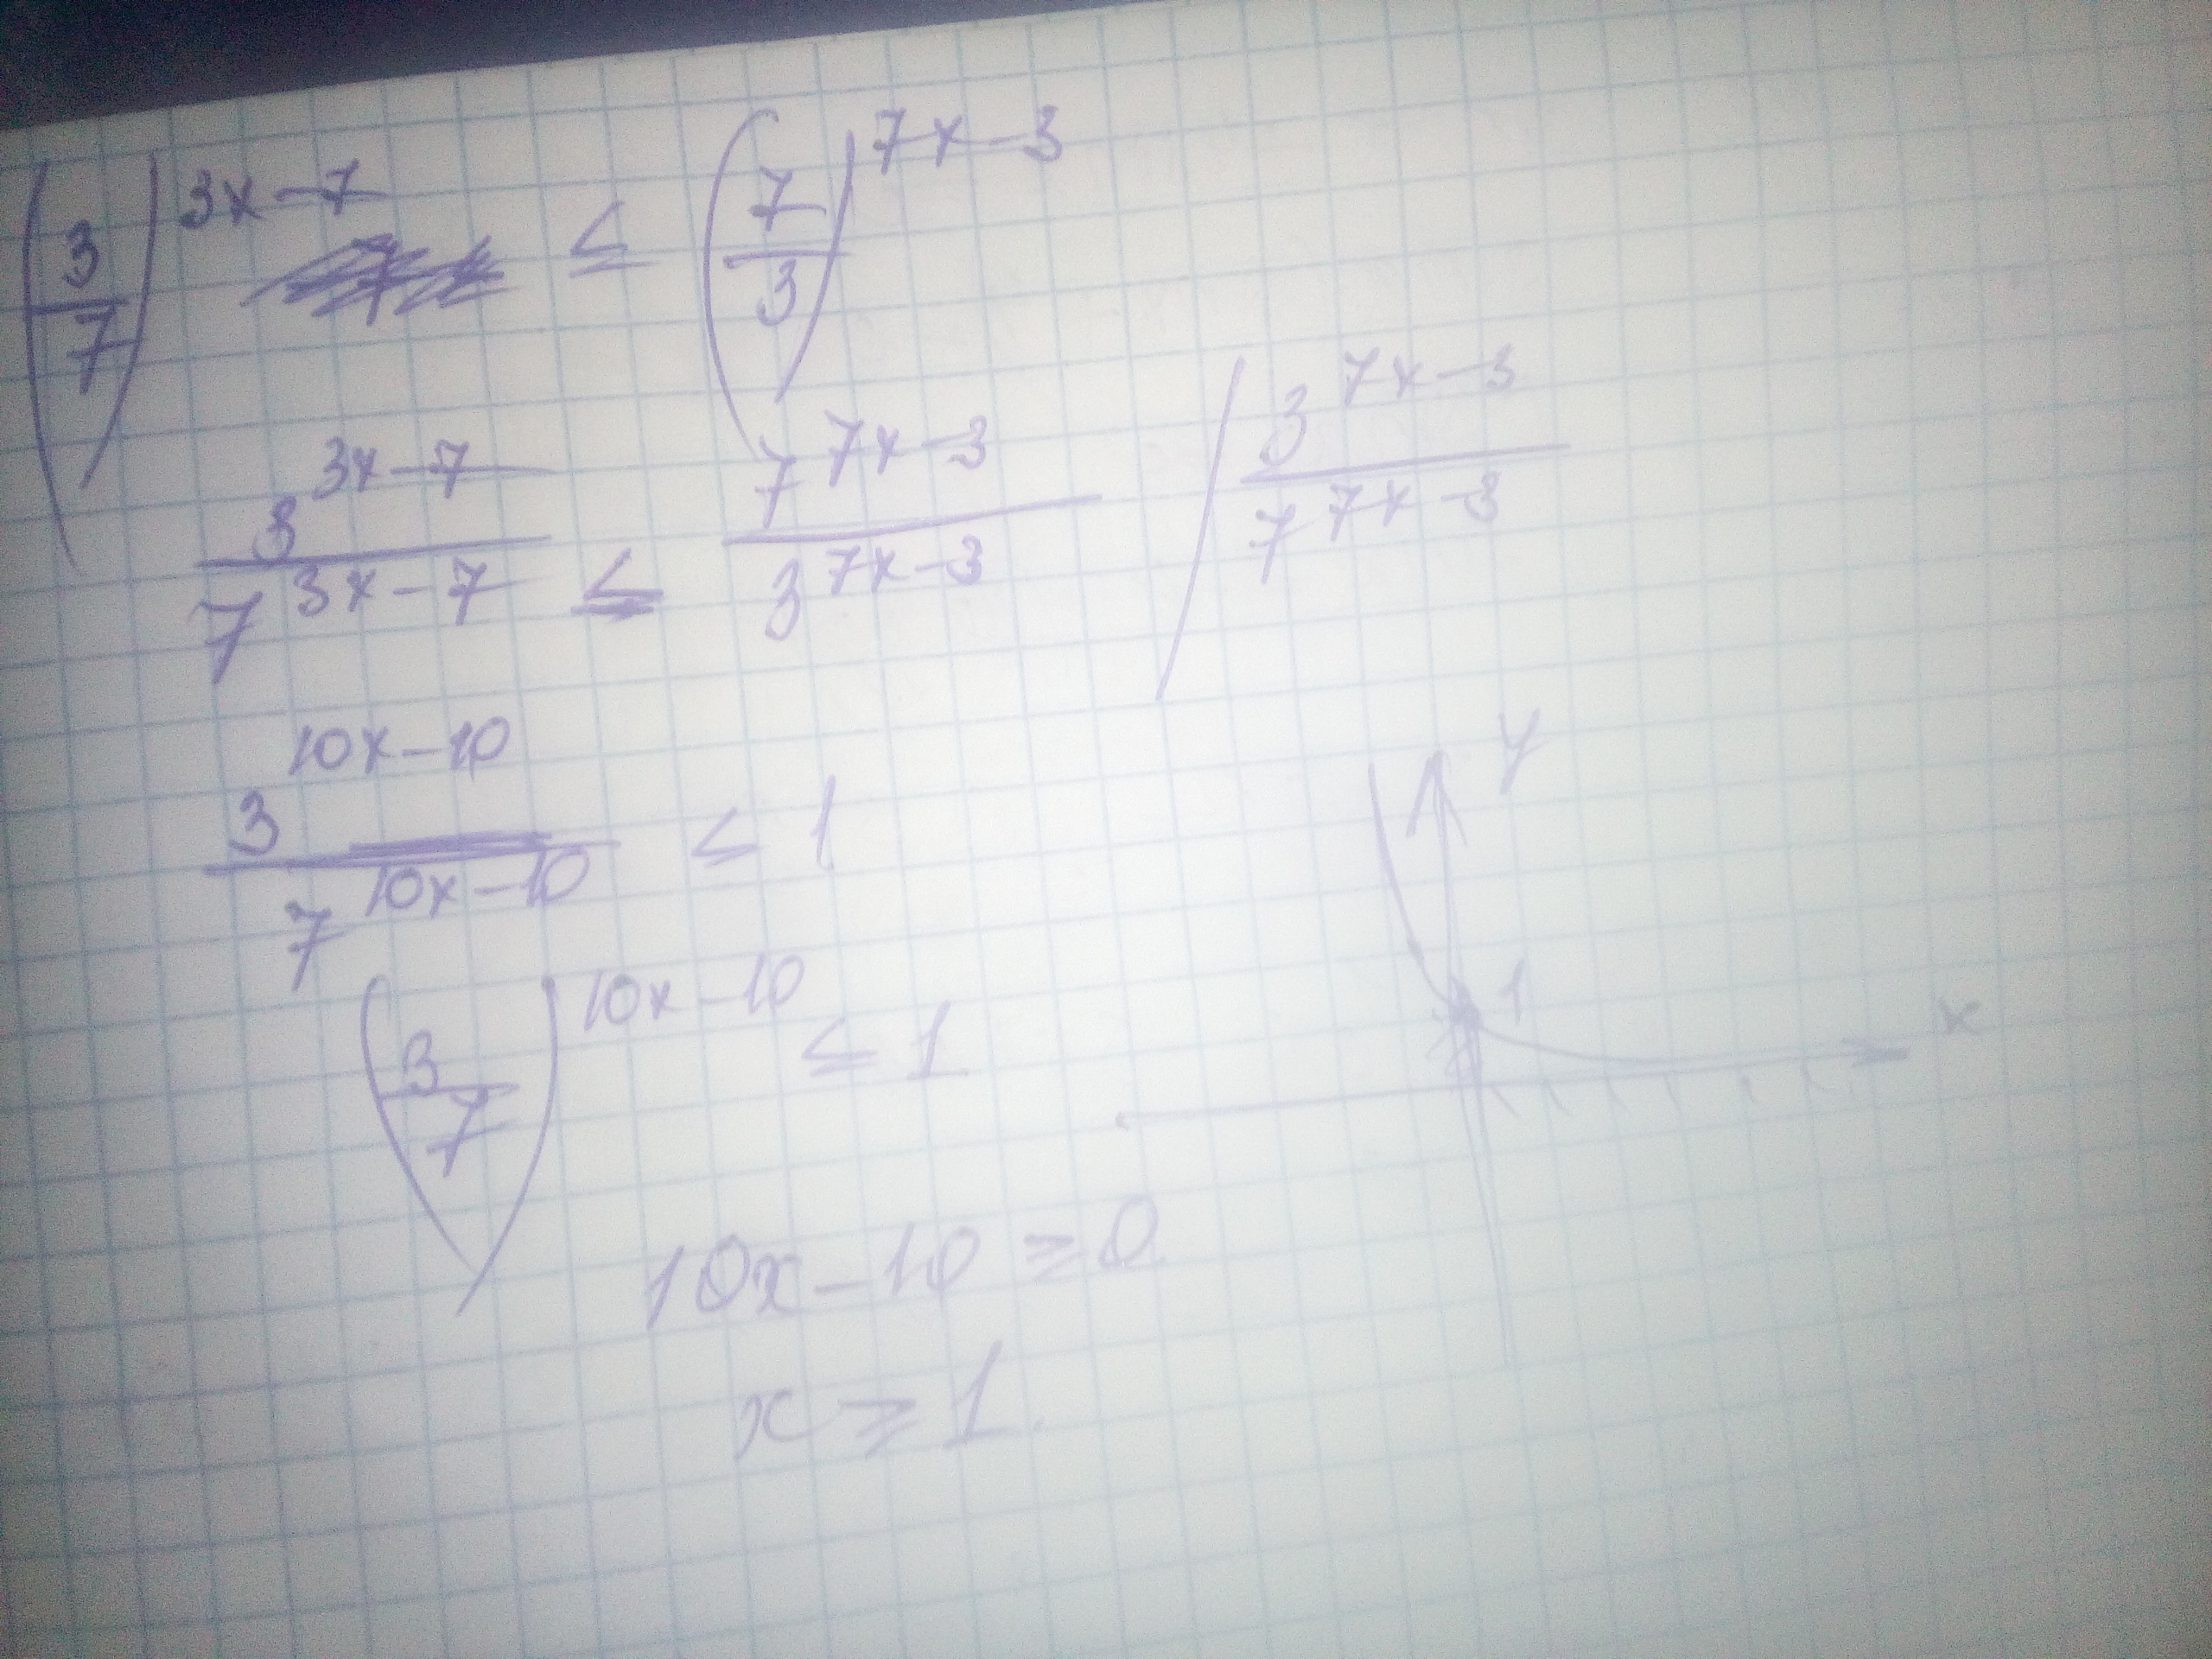 (3/7)^(3x-7) ≤ (7/3)^(7x-3)
3^(3x-7)/7^(3x-7) ≤ 7^(7x-3)/3^(7x-3) / 3^(7x-3)/7^(7x-3)
3^(10x-10)/7^(10x-10) ≤ 1
y
(3/7)^(10x-10) ≤ 1
1
x
10x-10 ≥ 0
x ≥ 1